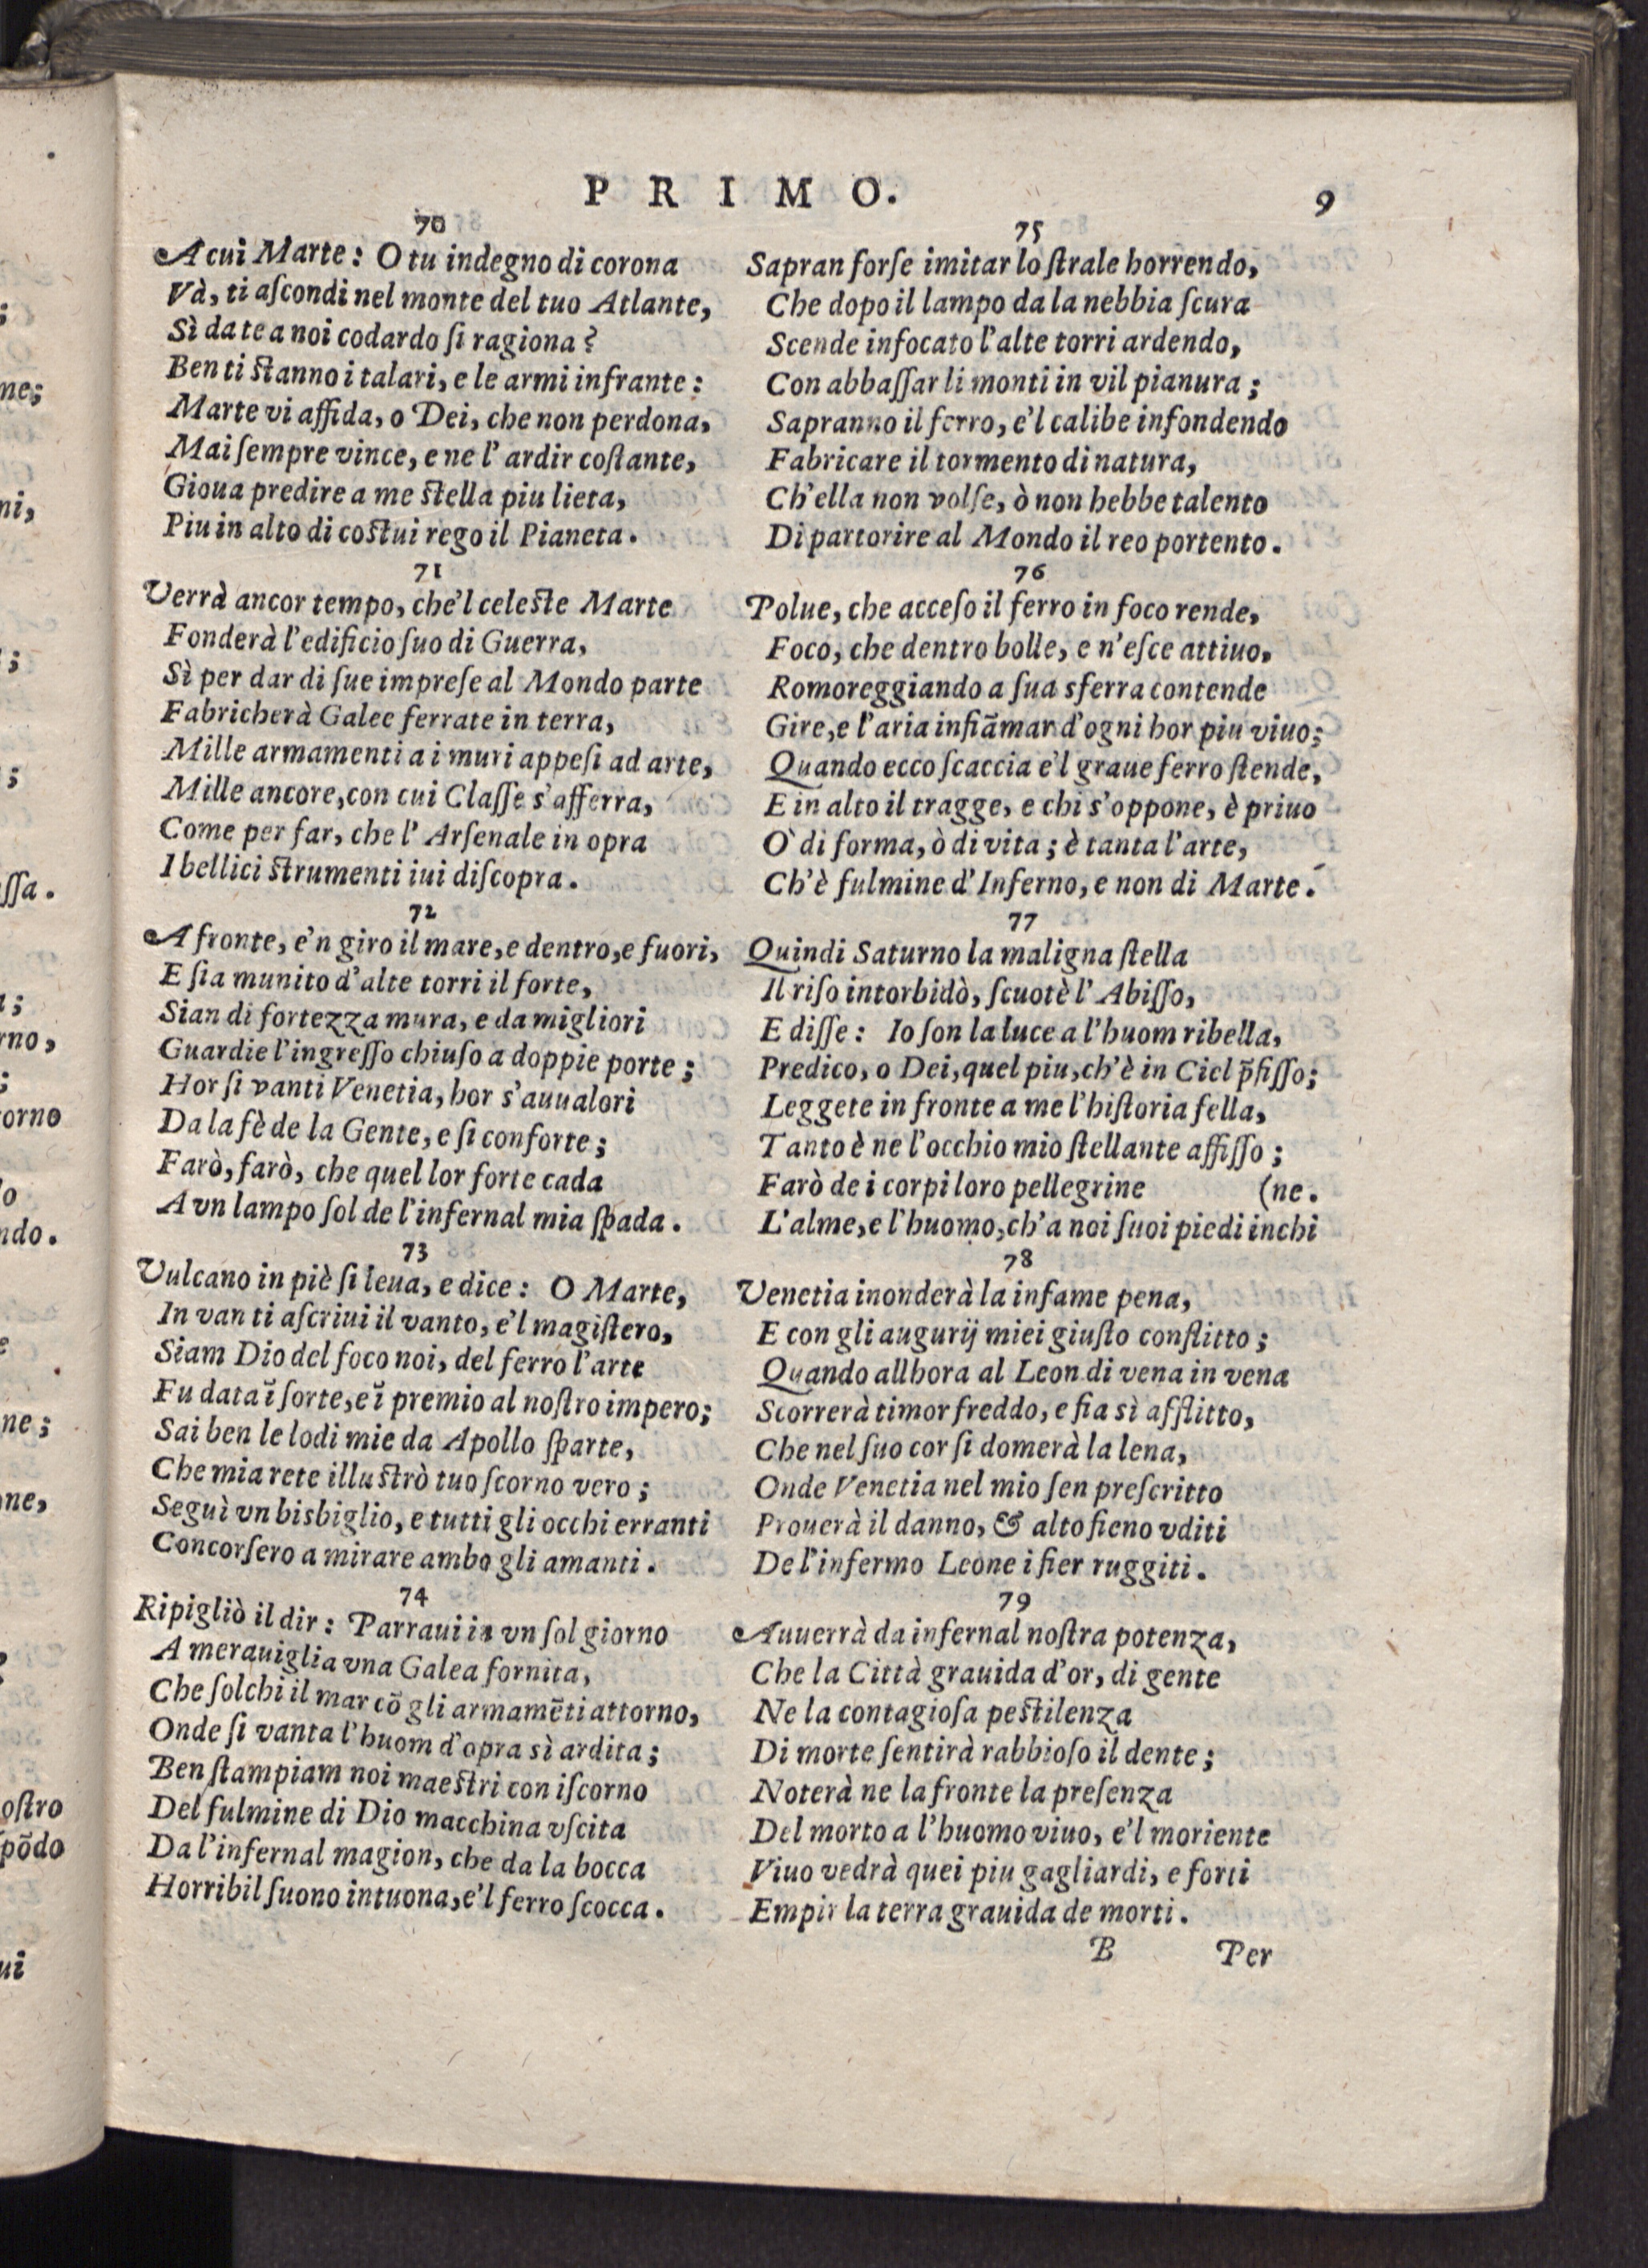 PRIMO.
9
70
A cui Marte: O tu indegno di corona
Và, ti aſcondi nel monte del tuo Atlante,
Sì da te a noi codardo ſi ragiona?
Ben ti ſtanno i talari, e le armi infrante:
Marte vi affida, o Dei, che non perdona,
Mai ſempre vince, e ne l'ardir coſtante,
Gioua predire a me ſtella piu lieta,
Piu in alto di coſtui rego il Pianeta.
71
Verrà ancor tempo, che'l celeſte Marte
Fonderà l'edificio ſuo di Guerra,
Sì per dar di ſue impreſe al Mondo parte
Fabricherà Galee ferrate in terra,
Mille armamenti a i muri appeſi ad arte,
Mille ancore, con cui Claſſe s'afferra,
Come per far, che l'Arſenale in opra
I bellici ſtrumenti iui diſcopra.
72
A fronte, e'n giro il mare, e dentro, e fuori,
E ſia munito d'alte torri il forte,
Sian di fortezza mura, e da migliori
Guardie l'ingreſſo chiuſo a doppie porte;
Hor ſi vanti Venetia, hor s'auualori
Da la fè de la Gente, e ſi conforte;
Farò, farò, che quel lor forte cada
A vn lampo ſol de l'infernal mia ſpada.
73
Vulcano in piè ſi leua, e dice: O Marte,
In van ti aſcriui il vanto, e'l magiſtero,
Siam Dio del foco noi, del ferro l'arte
Fu data ĩ ſorte, e ĩ premio al noſtro impero;
Sai ben le lodi mie da Apollo ſparte,
Che mia rete illuſtrò tuo ſcorno vero;
Seguì vn bisbiglio, e tutti gli occhi erranti
Concorſero a mirare ambo gli amanti.
74
Ripigliò il dir: Parraui in vn ſol giorno
A merauiglia vna Galea fornita,
Che ſolchi il mar cõ gli armamẽti attorno,
Onde ſi vanta l'huom d'opra sì ardita;
Ben ſtampiam noi maeſtri con iſcorno
Del fulmine di Dio macchina vſcita
Da l'infernal magion, che da la bocca
Horribil ſuono intuona, e'l ferro ſcocca.
75
Sapran forſe imitar lo ſtrale horrendo,
Che dopo il lampo da la nebbia ſcura
Scende infocato l'alte torri ardendo,
Con abbaſſar li monti in vil pianura;
Sapranno il ferro, e'l calibe infondendo
Fabricare il tormento di natura,
Ch'ella non volſe, ò non hebbe talento
Di partorire al Mondo il reo portento.
76
Polue, che acceſo il ferro in foco rende,
Foco, che dentro bolle, e n'eſce attiuo,
Romoreggiando a ſua sferra contende
Gire, e l'aria infiãmar d'ogni hor piu viuo;
Quando ecco ſcaccia e'l graue ferro ſtende,
E in alto il tragge, e chi s'oppone, è priuo
O' di forma, ò di vita; è tanta l'arte,
Ch'è fulmine d'Inferno, e non di Marte.
77
Quindi Saturno la maligna ſtella
Il riſo intorbidò, ſcuotè l'Abiſſo,
E diſſe: Io ſon la luce a l'huom ribella,
Predico, o Dei, quel piu, ch'è in Ciel p̃fiſſo;
Leggete in fronte a me l'hiſtoria fella,
Tanto è ne l'occhio mio ſtellante affiſſo;
Farò de i corpi loro pellegrine (ne.
L'alme, e l'huomo, ch'a noi ſuoi piedi inchi
78
Venetia inonderà la infame pena,
E con gli augurij miei giuſto conflitto;
Quando allhora al Leon di vena in vena
Scorrerà timor freddo, e fia sì afflitto,
Che nel ſuo cor ſi domerà la lena,
Onde Venetia nel mio ſen preſcritto
Prouerà il danno, & alto fieno vditi
De l'infermo Leone i fier ruggiti.
79
Auuerrà da infernal noſtra potenza,
Che la Città grauida d'or, di gente
Ne la contagioſa peſtilenza
Di morte ſentirà rabbioſo il dente;
Noterà ne la fronte la preſenza
Del morto a l'huomo viuo, e'l moriente
Viuo vedrà quei piu gagliardi, e forti
Empir la terra grauida de morti.
B Per